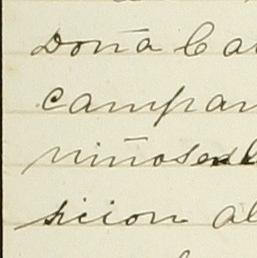 Doña Ca
campan
niños en l
sicion al